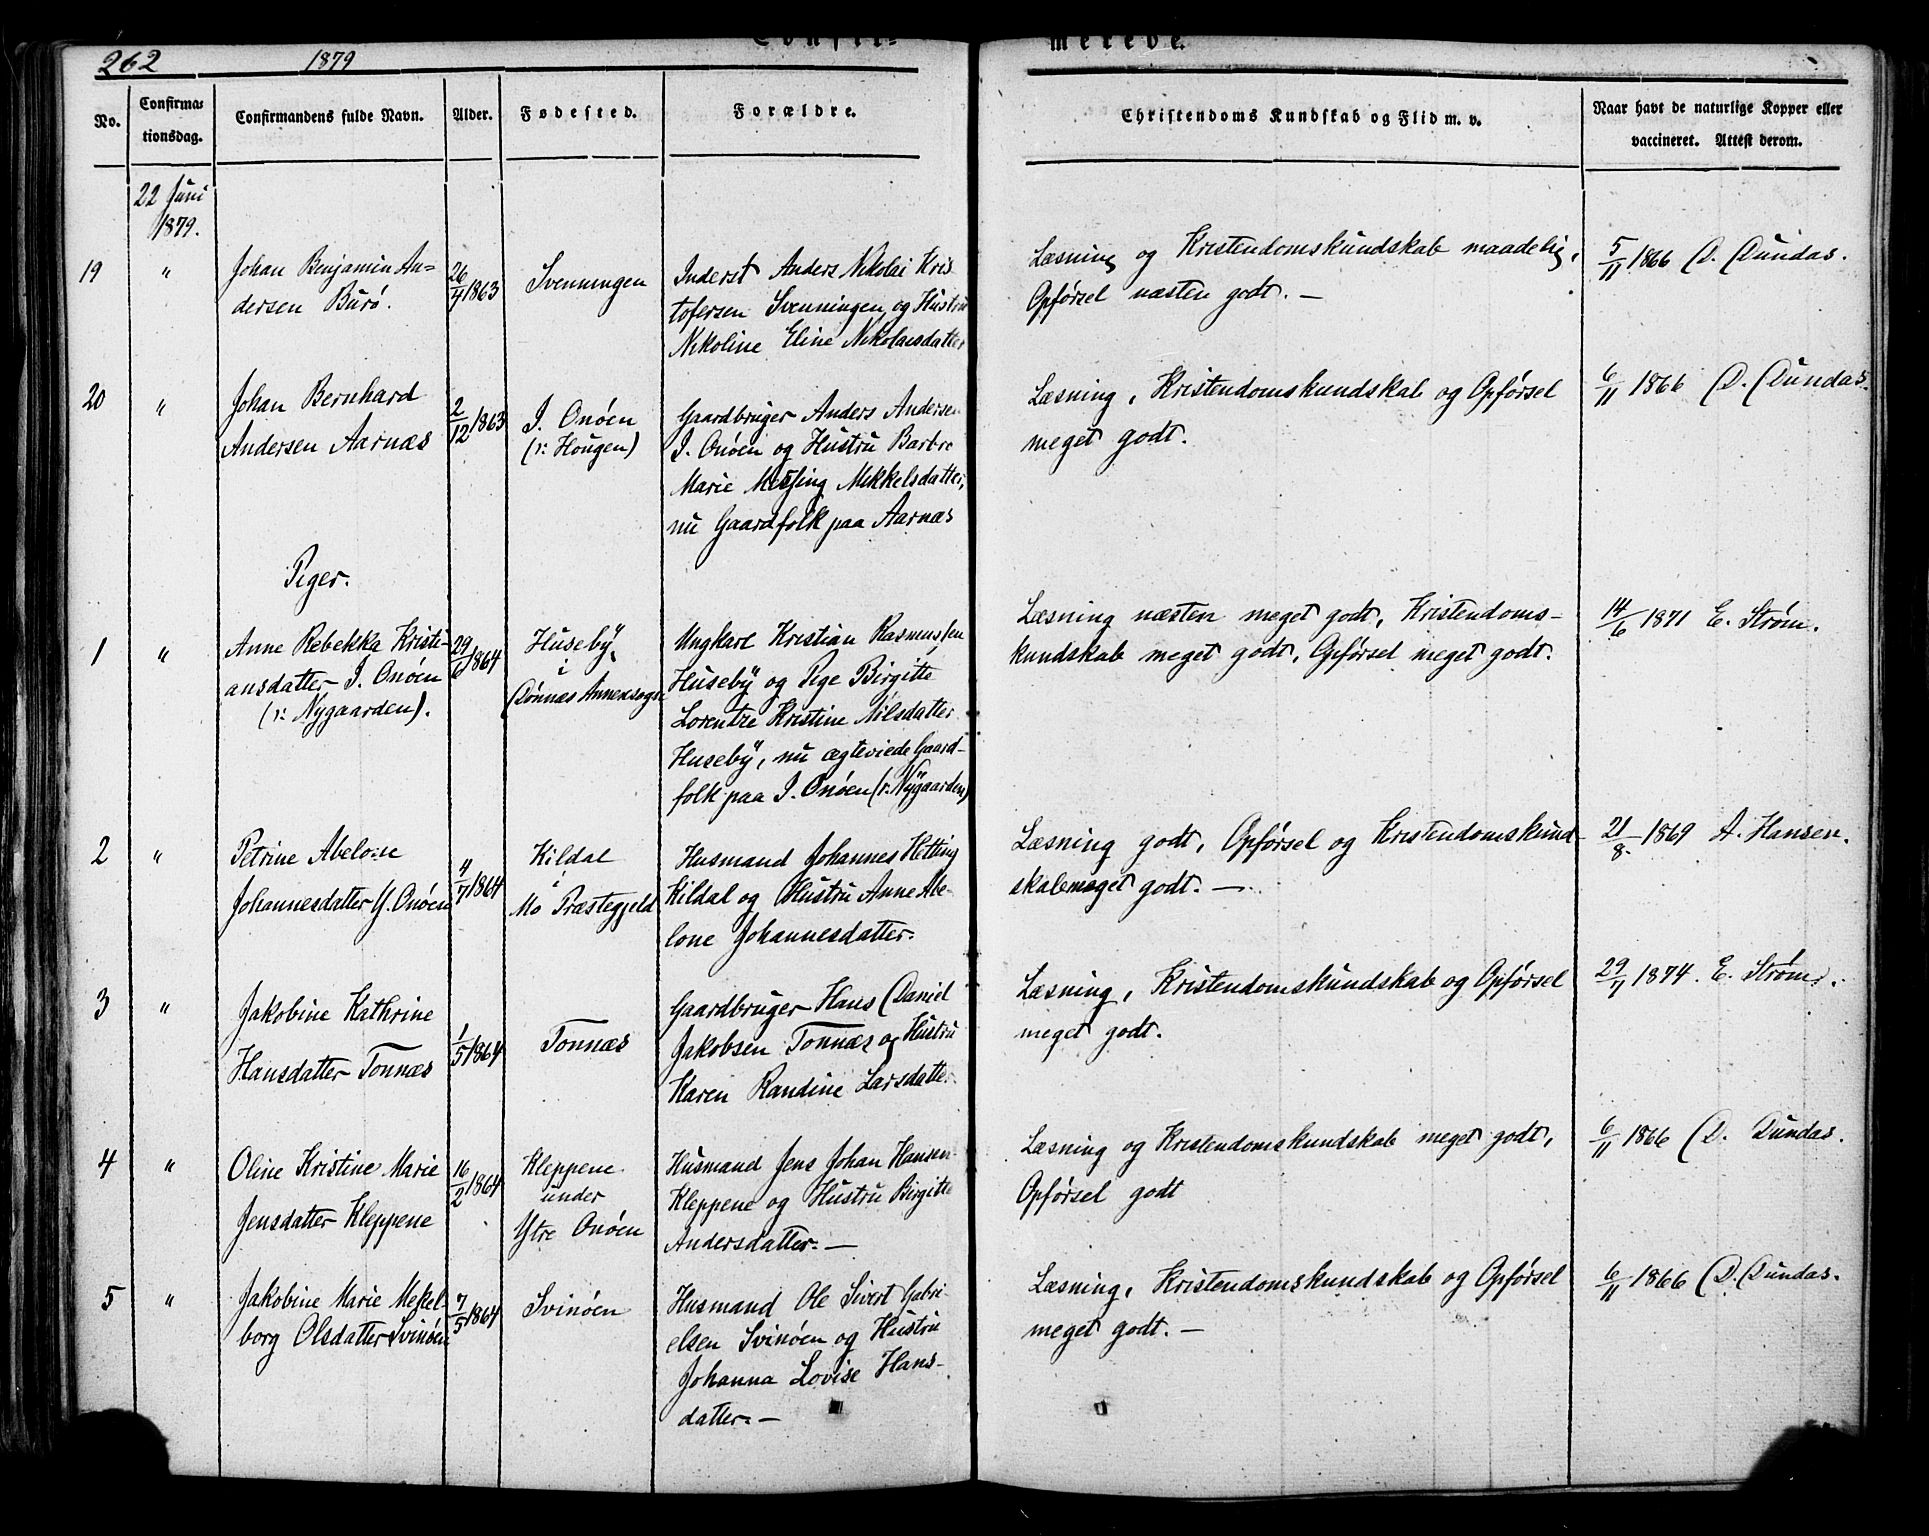 262 1879 Confir- merede.
No.
Confirma-
tionsdag.
Confirmandens fulde Navn.
Alder.
Fødested.
Forældre.
Christendoms Kundskab og Flid m. v.
Naar havt de naturlige Kopper eller
vaccineret. Attest derom.
22 Juni
1879.
19 " Johan Benjamin An-
dersen Burø.
26/4 1863
Svenningen
Inderst Anders Nikolai Kris
tofersen Svenningen og Hustru
Nikoline Eline Nikolaisdatter
Læsning og Kristendomskundskab maadelig,
Opførsel næsten godt. —
5/11 1866 D. Dundas.
20 " Johan Bernhard
Andersen Aarnæs
2/12 1863
I. Onøen
(v: Hougen)
Gaardbruger Anders Andersen
I. Onøen og Hustru Barbre
Marie Mikkelsdatter,
nu Gaardfolk paa Aarnæs
Læsning, Kristendomskundskab og Opførsel
meget godt.
6/11 1866 D. Dundas.
Piger.
1 " Anne Rebekka Kristi-
ansdatter I. Onøen
(v: Nygaarden).
29/ 1864
Huseby
i
Dønnæs Annexsogn
Ungkarl Kristian Rasmussen
Huseby og Pige Birgitte
Lorentze Kristine Nilsdatter
Huseby, nu ægteviede Gaard-
folk paa I. Onøen (v: Nygaarden)
Læsning næsten meget godt, Kristendoms-
kundskab meget godt, Opførsel meget godt.
14/6 1871 E. Strøm.
2 " Petrine Abelone
Johannesdatter Y. Onøen
4/7 1864
Kildal
i
Mo Præstegjeld
Husmand Johannes Hetting
Kildal og Hustru Anne Abe-
lone Johannesdatter.
Læsning godt, Opførsel og Kristendomskund-
skab meget godt. —
21/8 1869 A. Hansen.
3 " Jakobine Kathrine
Hansdatter Tonnæs
1/5 1864
Tonnæs
Gaardbruger Hans Daniel
Jakobsen Tonnæs og Hustru
Karen Randine Larsdatter
Læsning, Kristendomskundskab og Opførsel
meget godt.
29/7 1874. E. Strøm.
4 " Oline Kristine Marie
Jensdatter Kleppene
16/2 1864
Kleppene
under
Ytre Onøen
Husmand Jens Johan Hansen
Kleppene og Hustru Birgitte
Andersdatter. —
Læsning og Kristendomskundskab meget godt,
Opførsel godt
6/11 1866 D. Dundas.
5 " Jakobine Marie Mekel-
borg Olsdatter Svinøen
7/5 1864
Svinøen
Husmand Ole Sivert Gabri-
elsen Svinøen og Hustru
Johanna Lovise Hans-
datter. —
Læsning, Kristendomskundskab og Opførsel
meget godt. —
6/11 1866 D. Dundas.